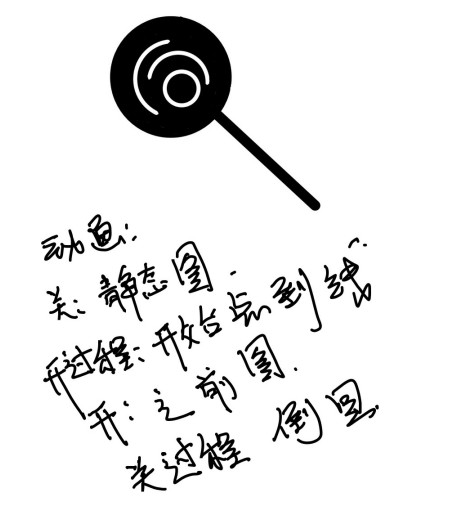 动画:
关: 静态图.
开过程: 开始点到线
开: 之前图.
关过程 倒回